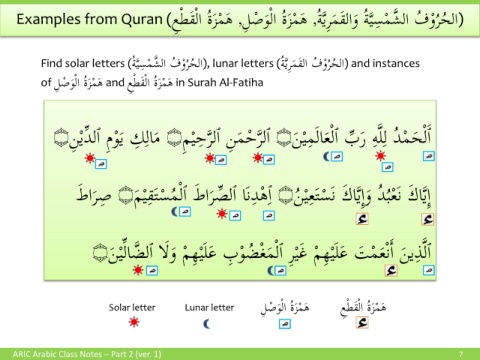 Examples from Quran (الحُرُوْفُ الشَّمْسِيَّةُ وَالقَمَرِيَّةُ, هَمْزَةُ الْوَصْلِ, هَمْزَةُ الْقَطْعِ)
Find solar letters (الحُرُوْفُ الشَّمْسِيَّةُ), lunar letters (الحُرُوْفُ القَمَرِيَّةُ) and instances
of هَمْزَةُ الْوَصْلِ and هَمْزَةُ الْقَطْعِ in Surah Al-Fatiha
اَلْحَمْدُ لِلَّهِ رَبِّ الْعَالَمِيْنَ۝ الرَّحْمَنِ الرَّحِيْمِ۝ مَالِكِ يَوْمِ الدِّيْنِ۝
إِيَّاكَ نَعْبُدُ وَإِيَّاكَ نَسْتَعِيْنُ۝ اِهْدِنَا الصِّرَاطَ الْمُسْتَقِيْمَ۝ صِرَاطَ
الَّذِينَ أَنْعَمْتَ عَلَيْهِمْ غَيْرِ الْمَغْضُوْبِ عَلَيْهِمْ وَلَا الضَّالِّيْنَ۝
Solar letter Lunar letter هَمْزَةُ الْوَصْلِ هَمْزَةُ الْقَطْعِ
ARIC Arabic Class Notes – Part 2 (ver. 1) 7